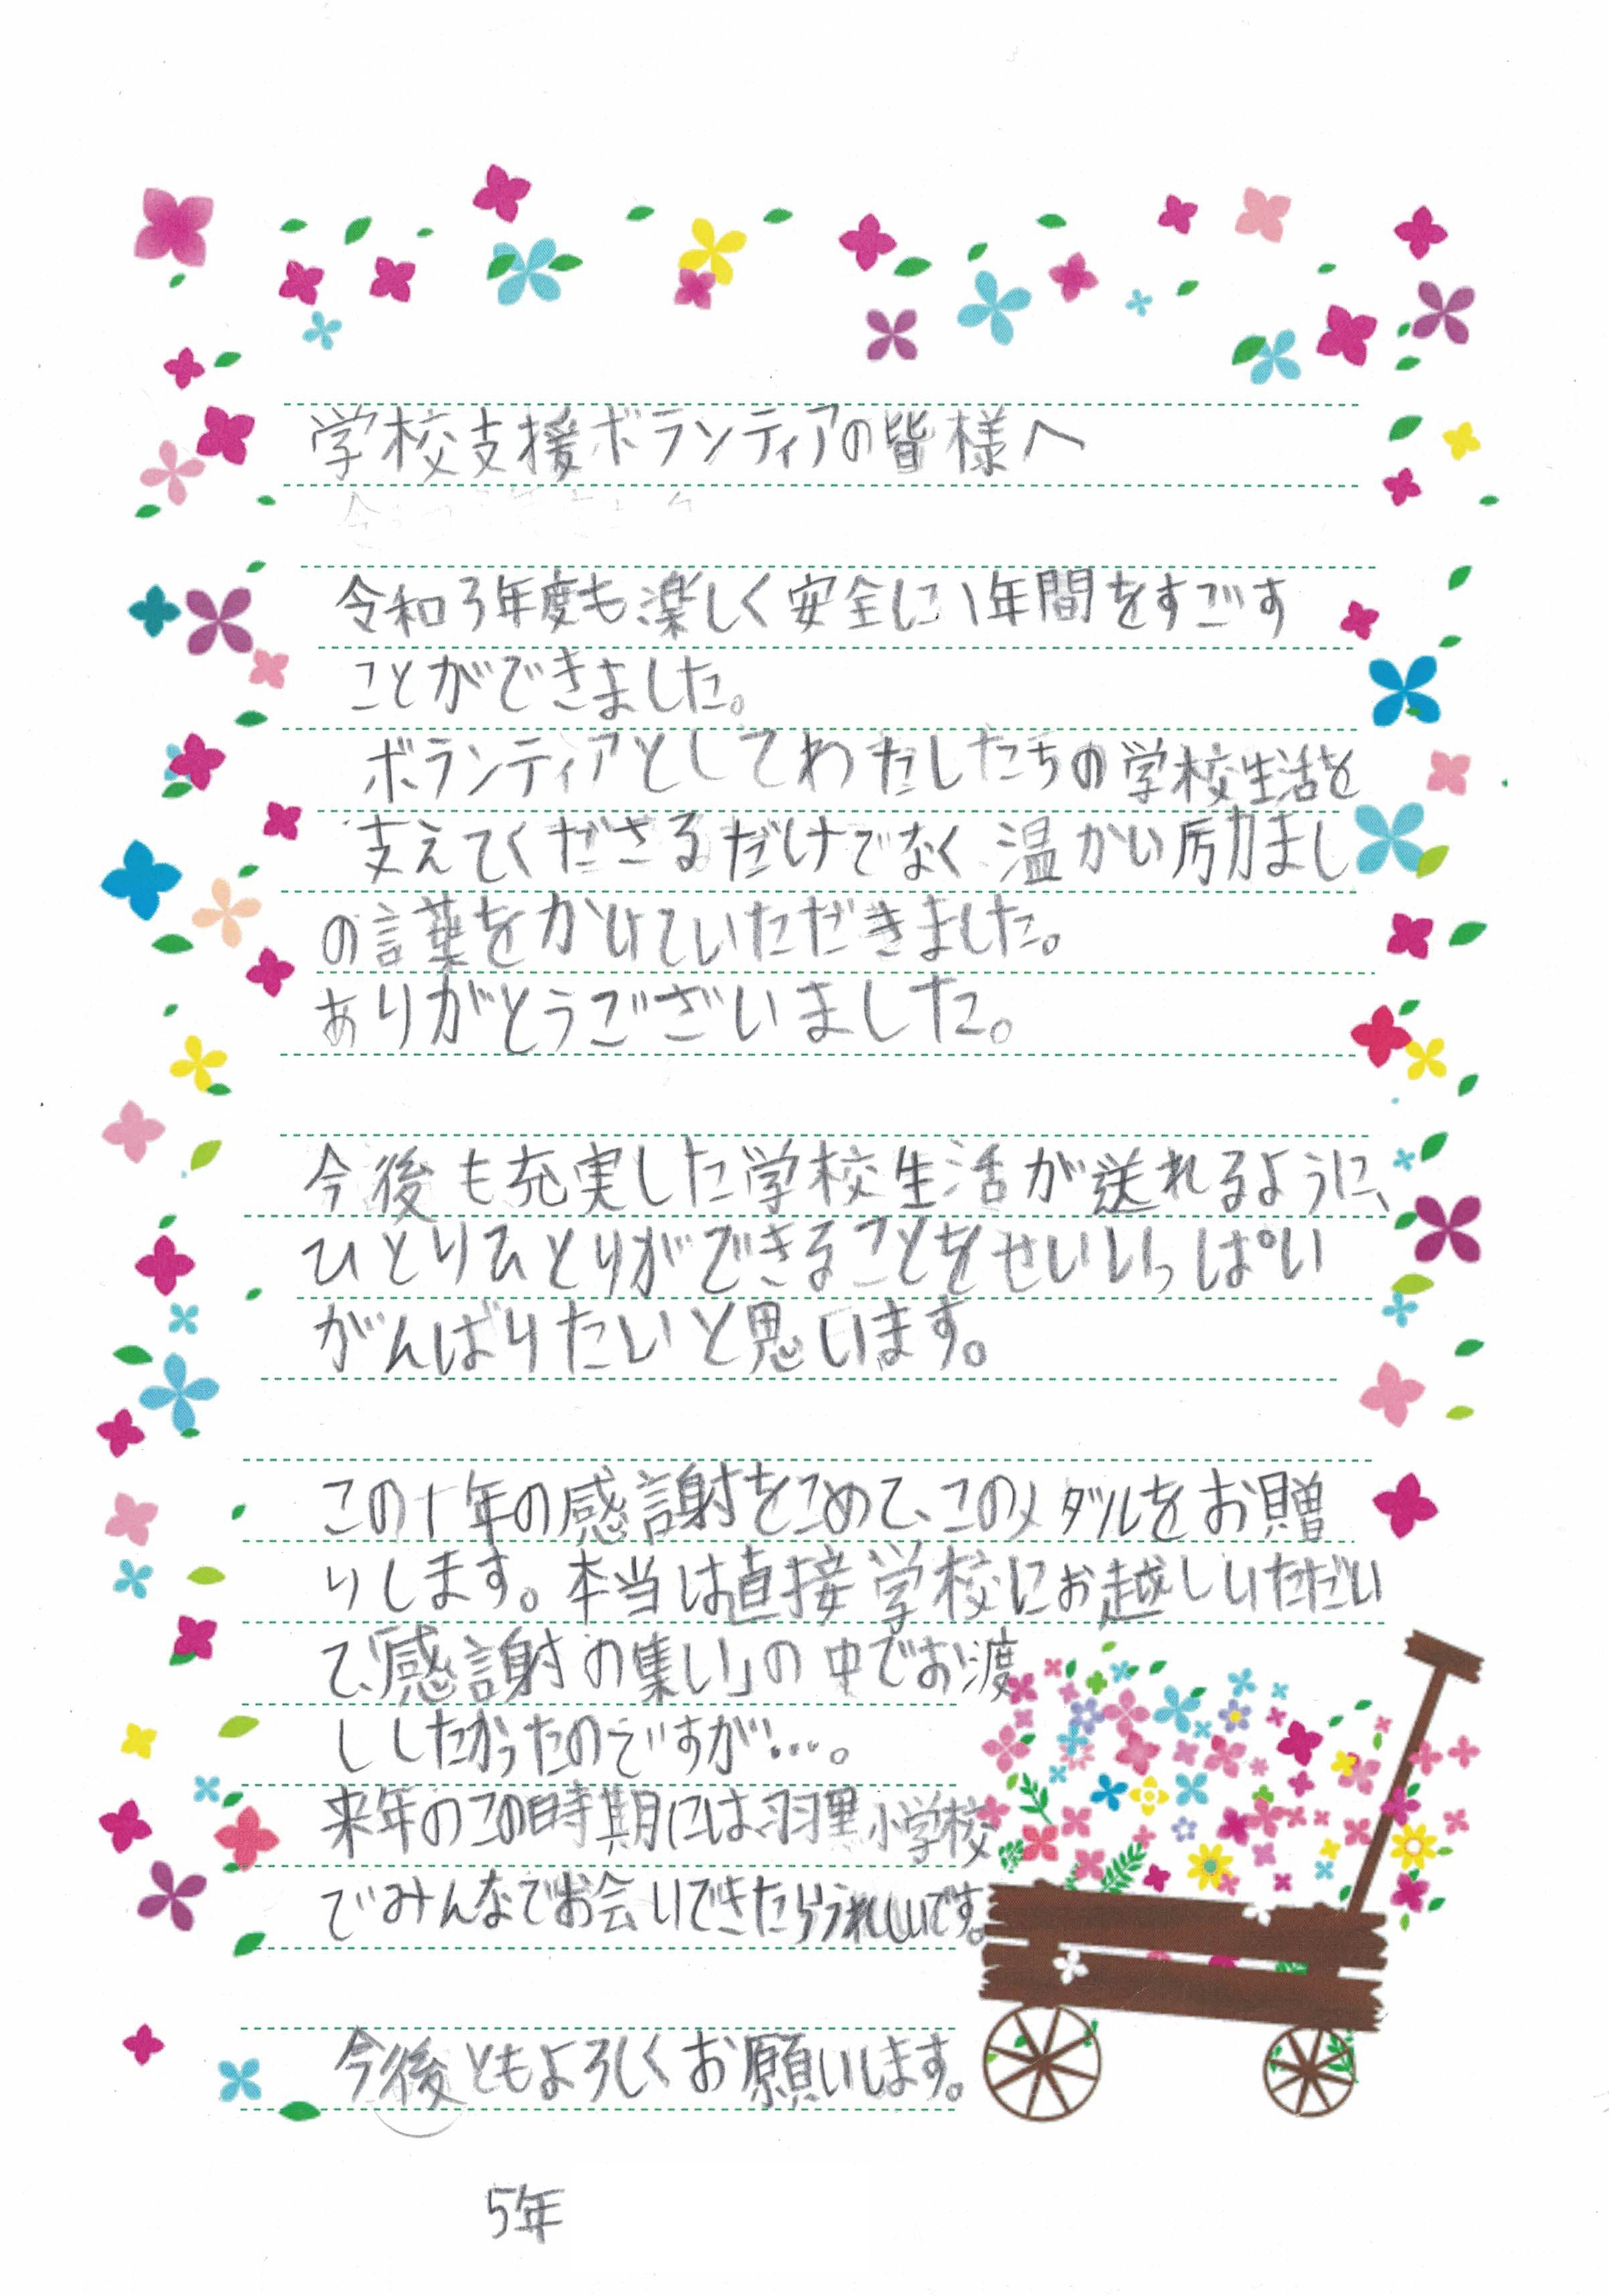 学校支援ボランティアの皆様へ
令和3年度も楽しく安全に1年間をすごす
ことができました。
ボランティアとしてわたしたちの学校生活を
支えてくださるだけでなく、温かい励まし
の言葉をかけていただきました。
ありがとうございました。
今後も充実した学校生活が送れるように、
ひとりひとりができることをせいいっぱい
がんばりたいと思います。
この十年の感謝をこめて、このメダルをお贈
りします。本当は直接学校にお越しいただい
て、「感謝の集い」の中でお渡
ししたかったのですが…。
来年のこの時期には、羽里小学校
でみんなでお会いできたらうれしいです。
今後ともよろしくお願いします。
5年